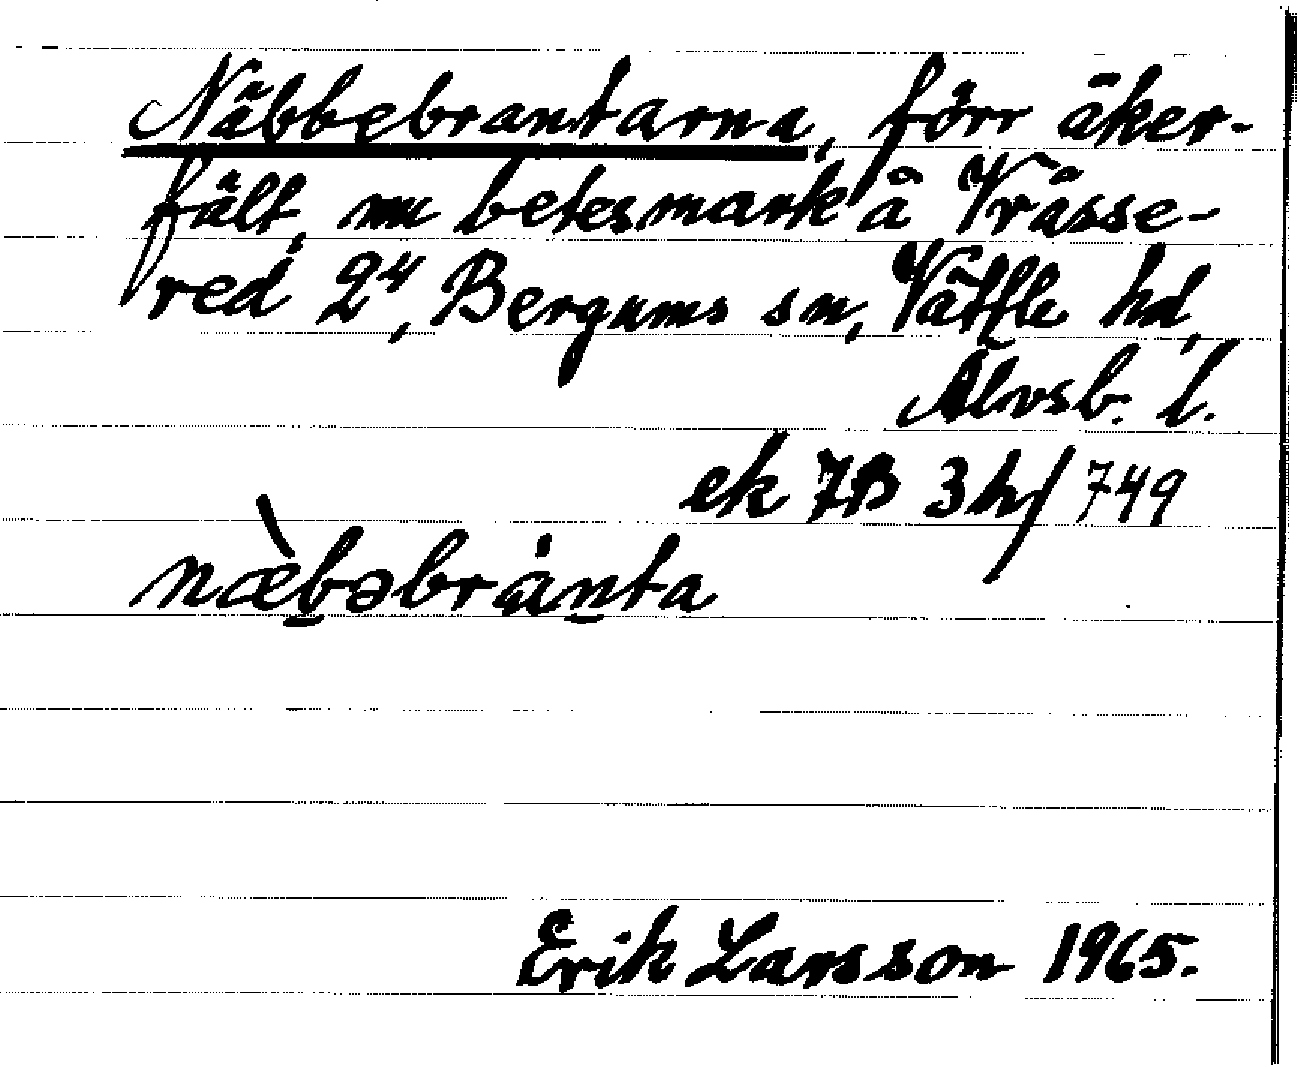 Näbbebrantarna, förr åker-
fält, nu betesmark å Vråsse-
red 2⁴, Bergums sn, Vättle hd,
Älvsb. l.
ek 7B 3h/749
næ̀b̲əbrȧn̲ta
Erik Larsson 1965.